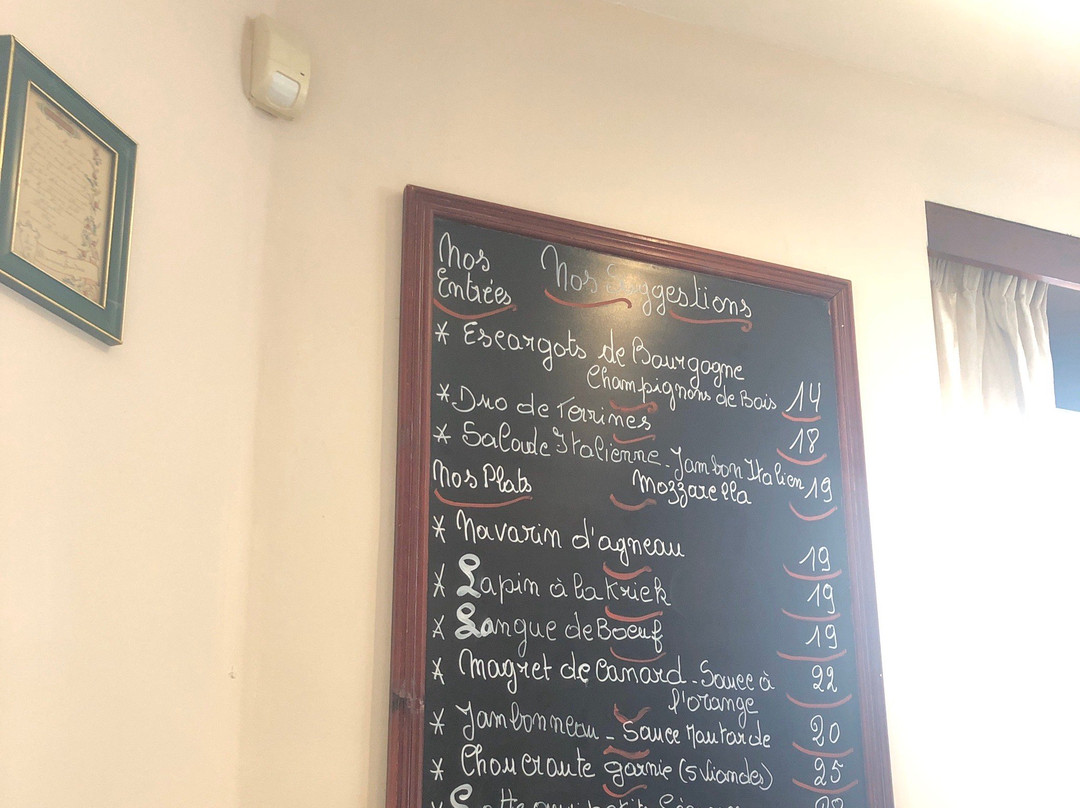 Nos Suggestions
Nos
Entrées
* Escargots de Bourgogne
Champignons de Bois 14
* Duo de Terrines 18
* Salade Italienne - Jambon Italien
Mozzarella 19
Nos Plats
* Navarin d'agneau 19
* Lapin à la Kriek 19
* Langue de Boeuf 19
* Magret de Canard - Sauce à
l'orange 22
* Jambonneau - Sauce Moutarde 20
* Choucroute garnie (5 Viandes) 25